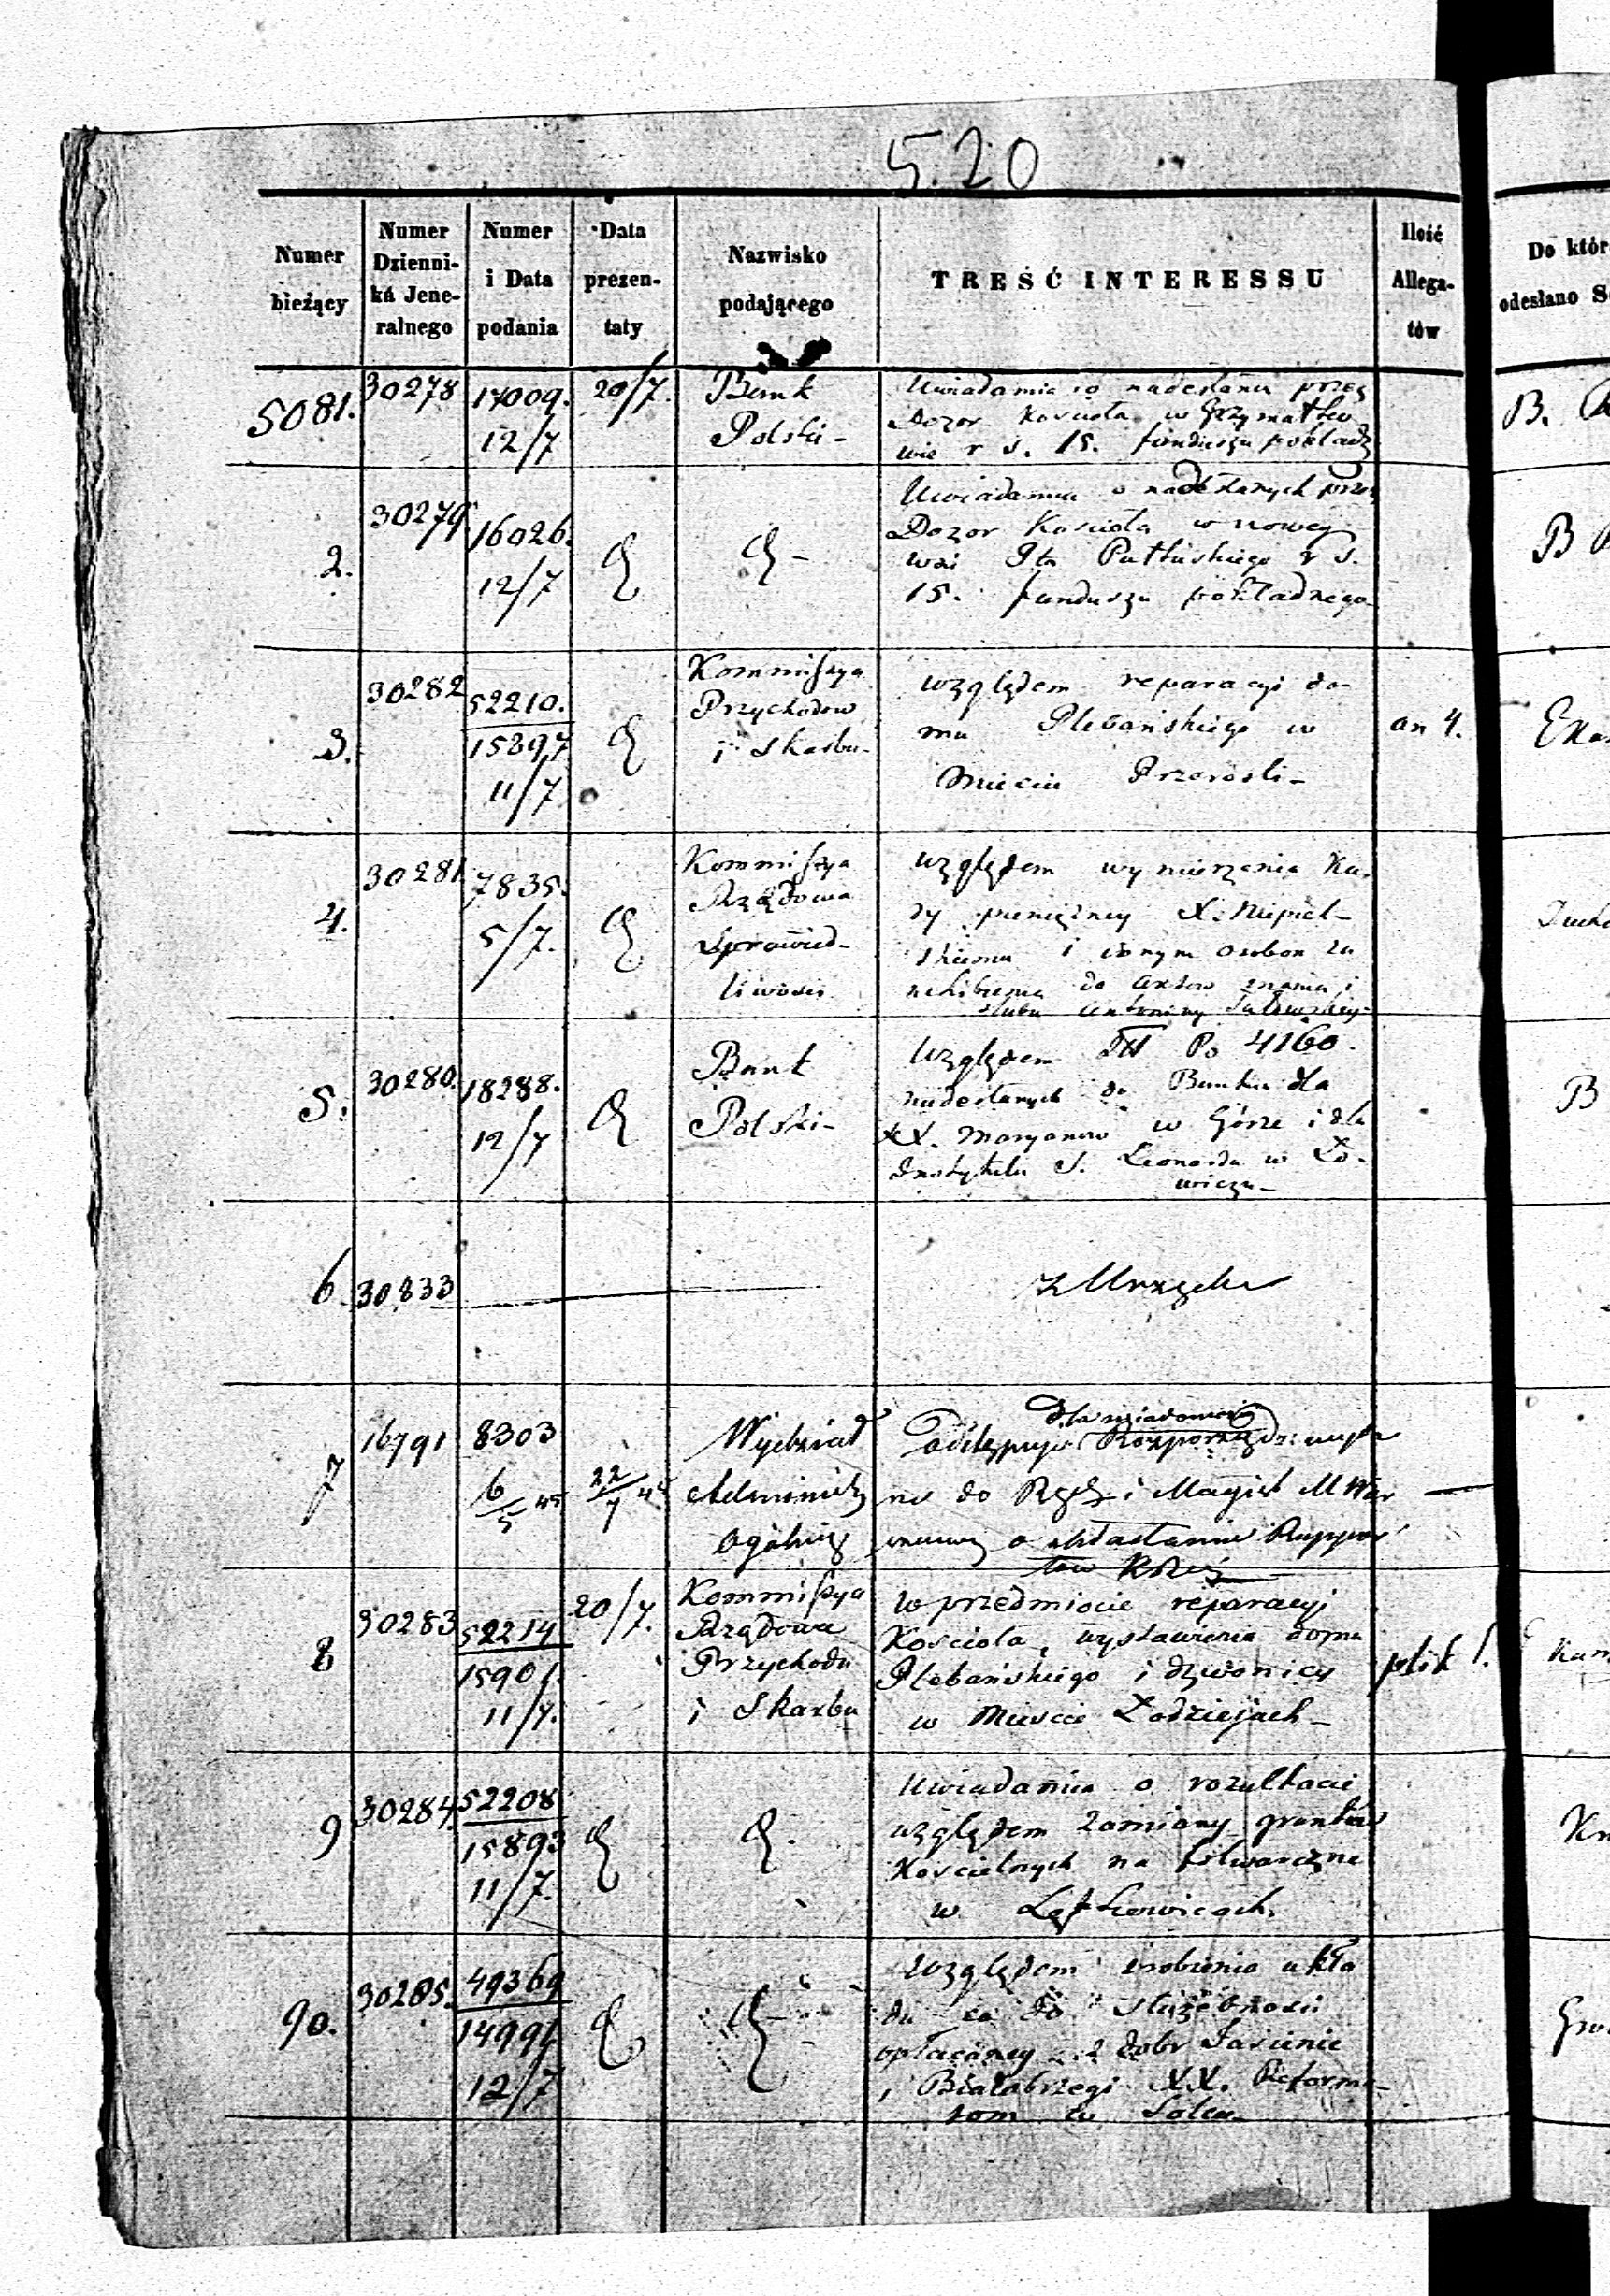 5.20
Numer bieżący
Numer Dzienni-ka Jene-ralnego
Numer i Data podania
Data prezen-taty
Nazwisko podającego
TREŚĆ INTERESSU
Ilość Allega-tów
Do któr
odesłano S
5081.
30278
17009.
12/7
20/7.
Bank
Polski -
Uwiadamia o nadesłaniu przez
Dozor Kościoła w Grzymałko
wie r s. 15. funduszu pokładz
B.
2.
30279
16026.
12/7
Uwiadamia o nadesłanych przez
Dozor Kościoła w nowey
wsi Ptu Pułtuskiego r s.
15. funduszu pokładnego
B
3.
30282
52210.
15897
11/7
Kommissya
Przychodow
i Skarbu -
względem reparacyi do-
mu Plebańskiego w
Mieście Przerośli -
an 4.
4.
30281
7835.
5/7.
Kommissya
Rządowa
Sprawied-
liwości
względem wymierzenia Ka-
ry pieniężney X.
skiemu i innym osobom za
do aktow znania i
ślubu Antoniny
5.
30280.
18288.
12/7
Bank
Polski -
Względem Po 4160.
nadesłanych do Banku dla
XX. Maryanow w Górze i dla
Instytutu S. Leonarda w Ło-
wiczu -
B
6
30833
z Urzędu
7
16791
8303
6/5 45
22/7 45
Wydział
Administr
Ogólnej
dla wiadomości
odstępuje Rozporządz: wyda
ne do Rządu i Magist M War
szawy o składanie Rappor
tow
8
30283
52214
15901.
11/7.
20/7.
Kommissya
Rządowa
Przychodu
i Skarbu
w przedmiocie reparacyi
Kościoła, wystawienia domu
Plebańskiego i dzwonicy
w Mieście Łodziejach -
plik 1.
9
30284.
52208
15893
11/7.
Uwiadamia o rozultacie
względem zamiany gruntów
Kościelnych na folwarczne
w
90.
30285.
49369
14991
12/7
Względem zrobienia ukła
du co do służebności
opłacaney z dobr Jasienie
i Białobrzegi XX. Reforma-
tom w Solcu -